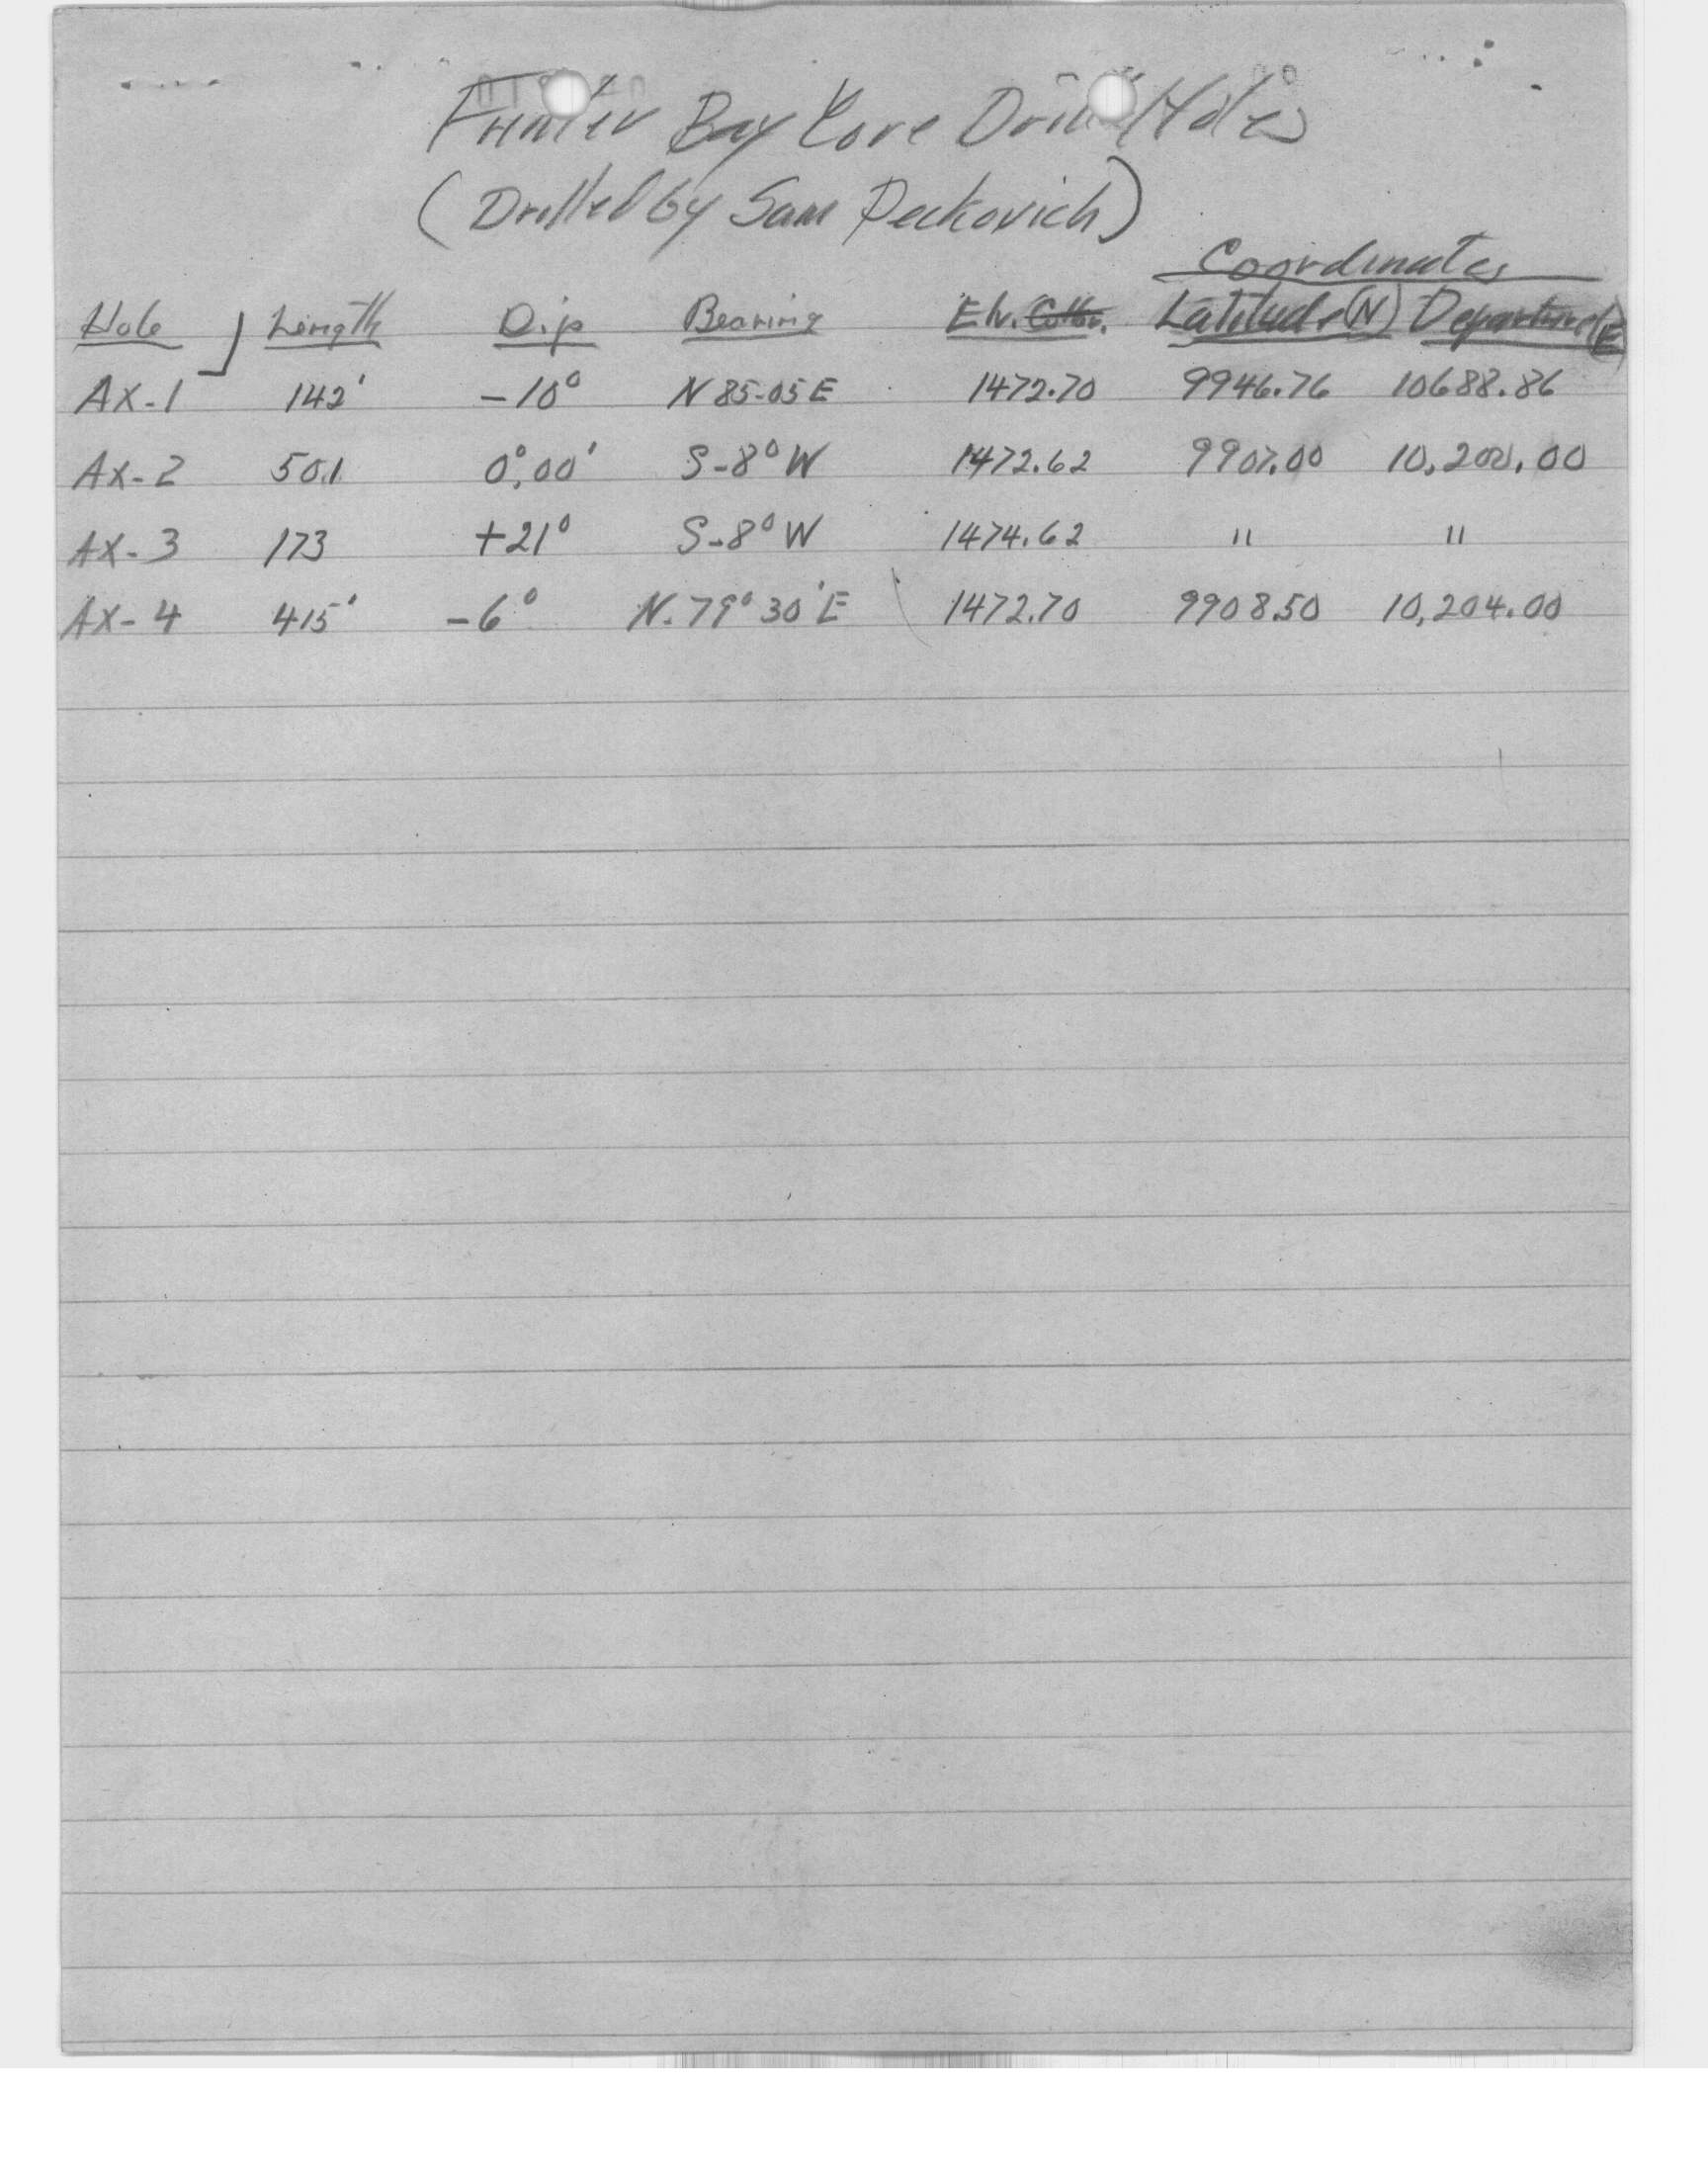 Funter Bay Core Drill Holes
(Drilled by Sam Peckovich)
Coordinates
Hole Length Dip Bearing Elv. Collar. Latitude (N) Departure (E)
AX-1 142' -10° N 85-05 E 1472.70 9946.76 10688.86
AX-2 501 0°,00' S-8° W 1472.62 9907.00 10,200.00
AX-3 173 +21° S-8° W 1474.62 " "
AX-4 415' -6° N. 79° 30' E 1472.70 9908.50 10,204.00